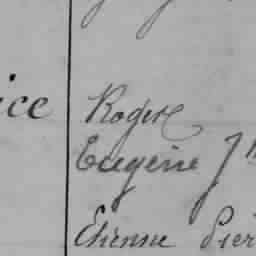 ice Roger
Eugène
Etienne Pier